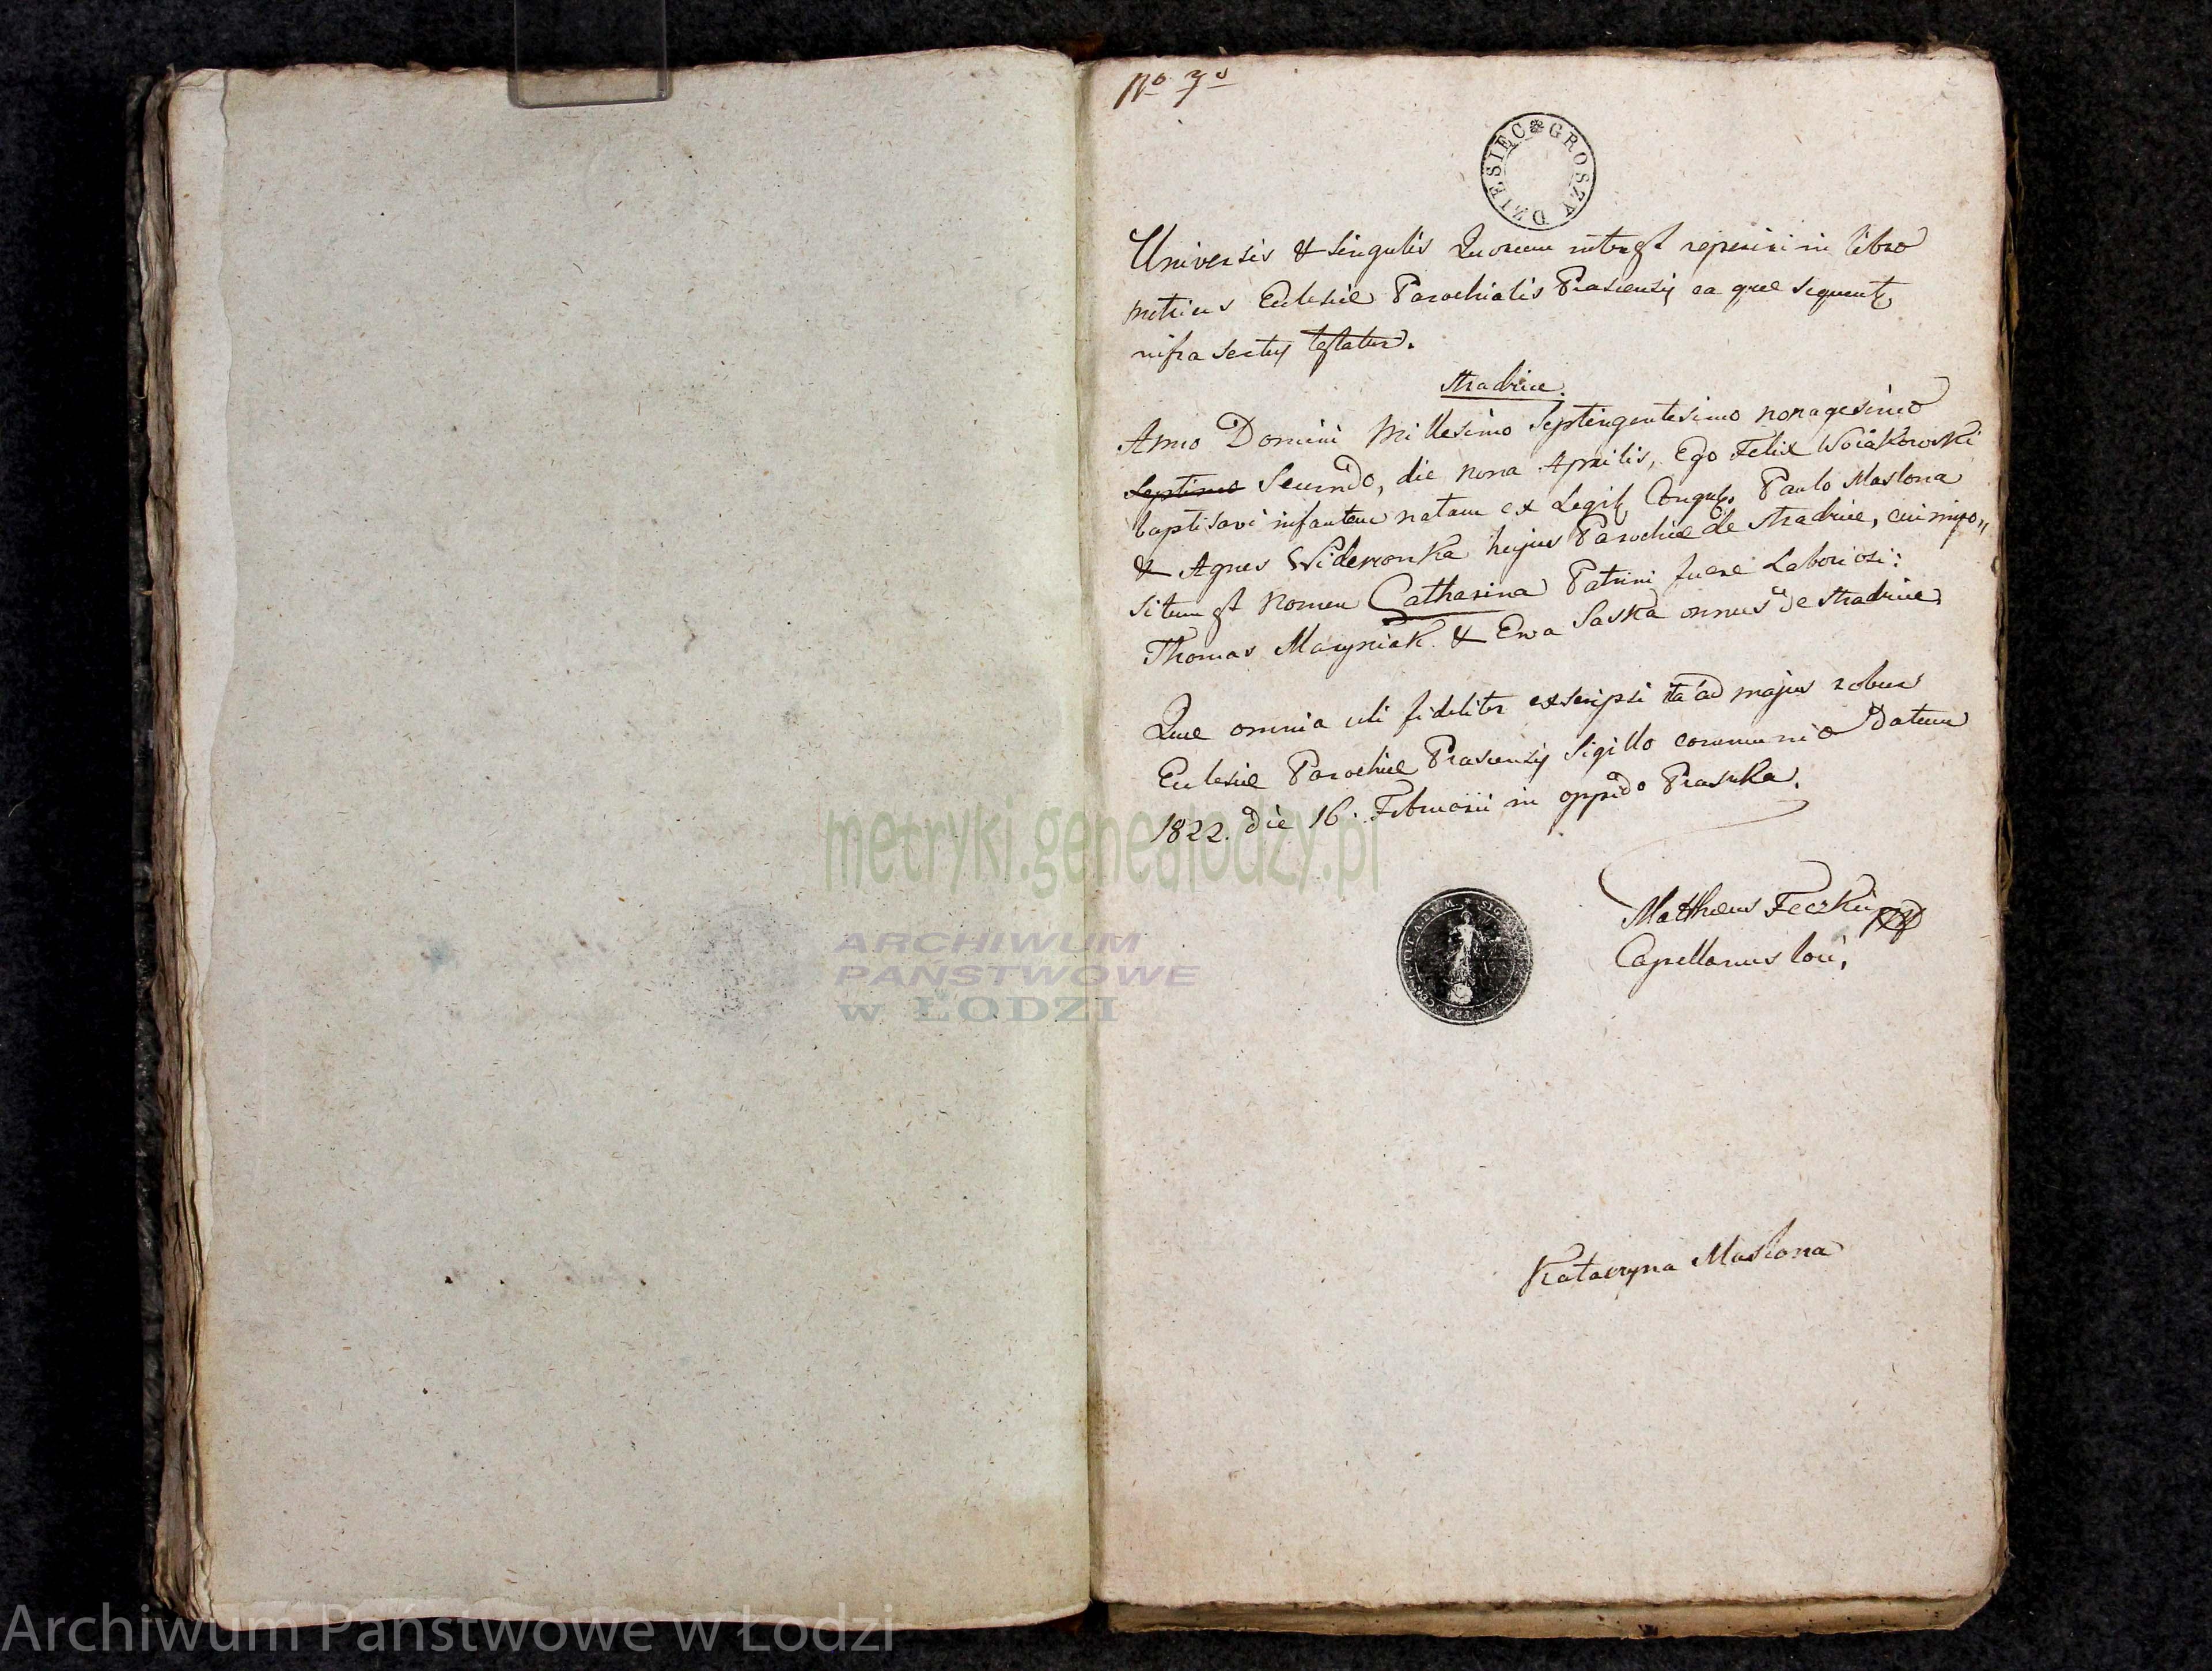 No 7o
DZIESIĘC GROSZY
Universis & singulis Quorum interest reperiri in libro
metrices Eclesiæ Parochialis Prascensis ea que sequentr
infra sectus testatur.
Stradziec.
Anno Domini Millesimo Septingentesimo nonagesimo
Septimo Secundo, die nona Aprilis, Ego Felix Woiakowski
baptisavi infantem natam ex Legit Conguv. Paulo Maslona
& Agnes Widerzonka hujus Parochiæ de Stradziec, cui impo„
situm est nomen Catharina Patrini fuere Laboriosi:
Thomas Maryniak & Ewa Saska omnes de Stradziec.
Que omnia uti fideliter exscripsi ita ad majus robur
Eclesiæ Parochiæ Prascensis Sigillo communio Datum
1822. Die 16. Februarii in oppido Praszka.
Matthæus Feczkin
Capellanus loci,
Katarzyna Maslona
metryki.genealodzy.pl
ARCHIWUM
PAŃSTWOWE
w ŁODZI
Archiwum Państwowe w Łodzi